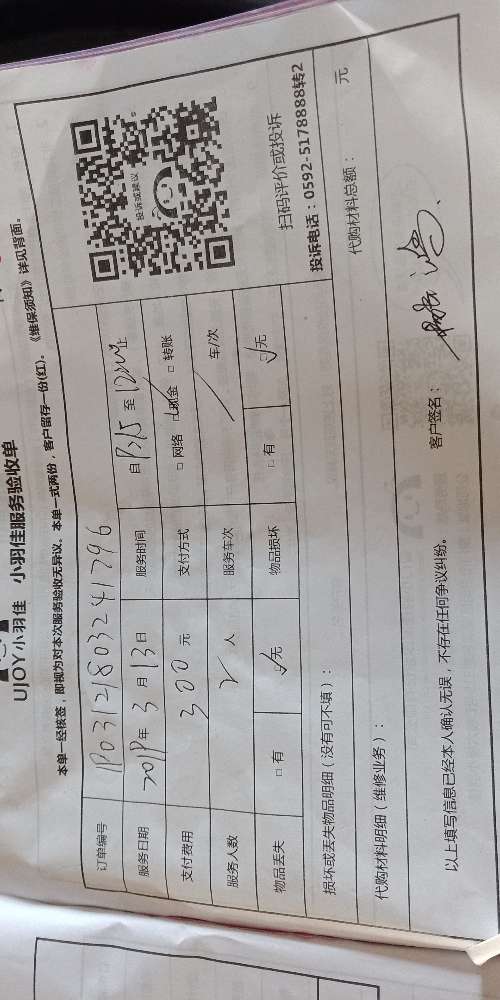 UJOY小羽佳 小羽佳服务验收单
本单一经核签，即视为对本次服务验收无异议。本单一式两份，客户留存一份(红)。《维保须知》详见背面。
订单编号
服务日期 2019年 3 月 13 日 服务时间 自 至 止
支付费用 300 元 支付方式 □ 网络 □ 现金 □ 转账
服务人数 2 人 服务车次 车/次
物品丢失 □ 有 □ 无 物品损坏 □ 有 □ 无
投诉或建议
扫码评价或投诉
投诉电话：0592-5178888转2
损坏或丢失物品明细（没有可不填）：
代购材料明细（维修业务）： 代购材料总额： 元
以上填写信息已经本人确认无误，不存在任何争议纠纷。 客户签名：